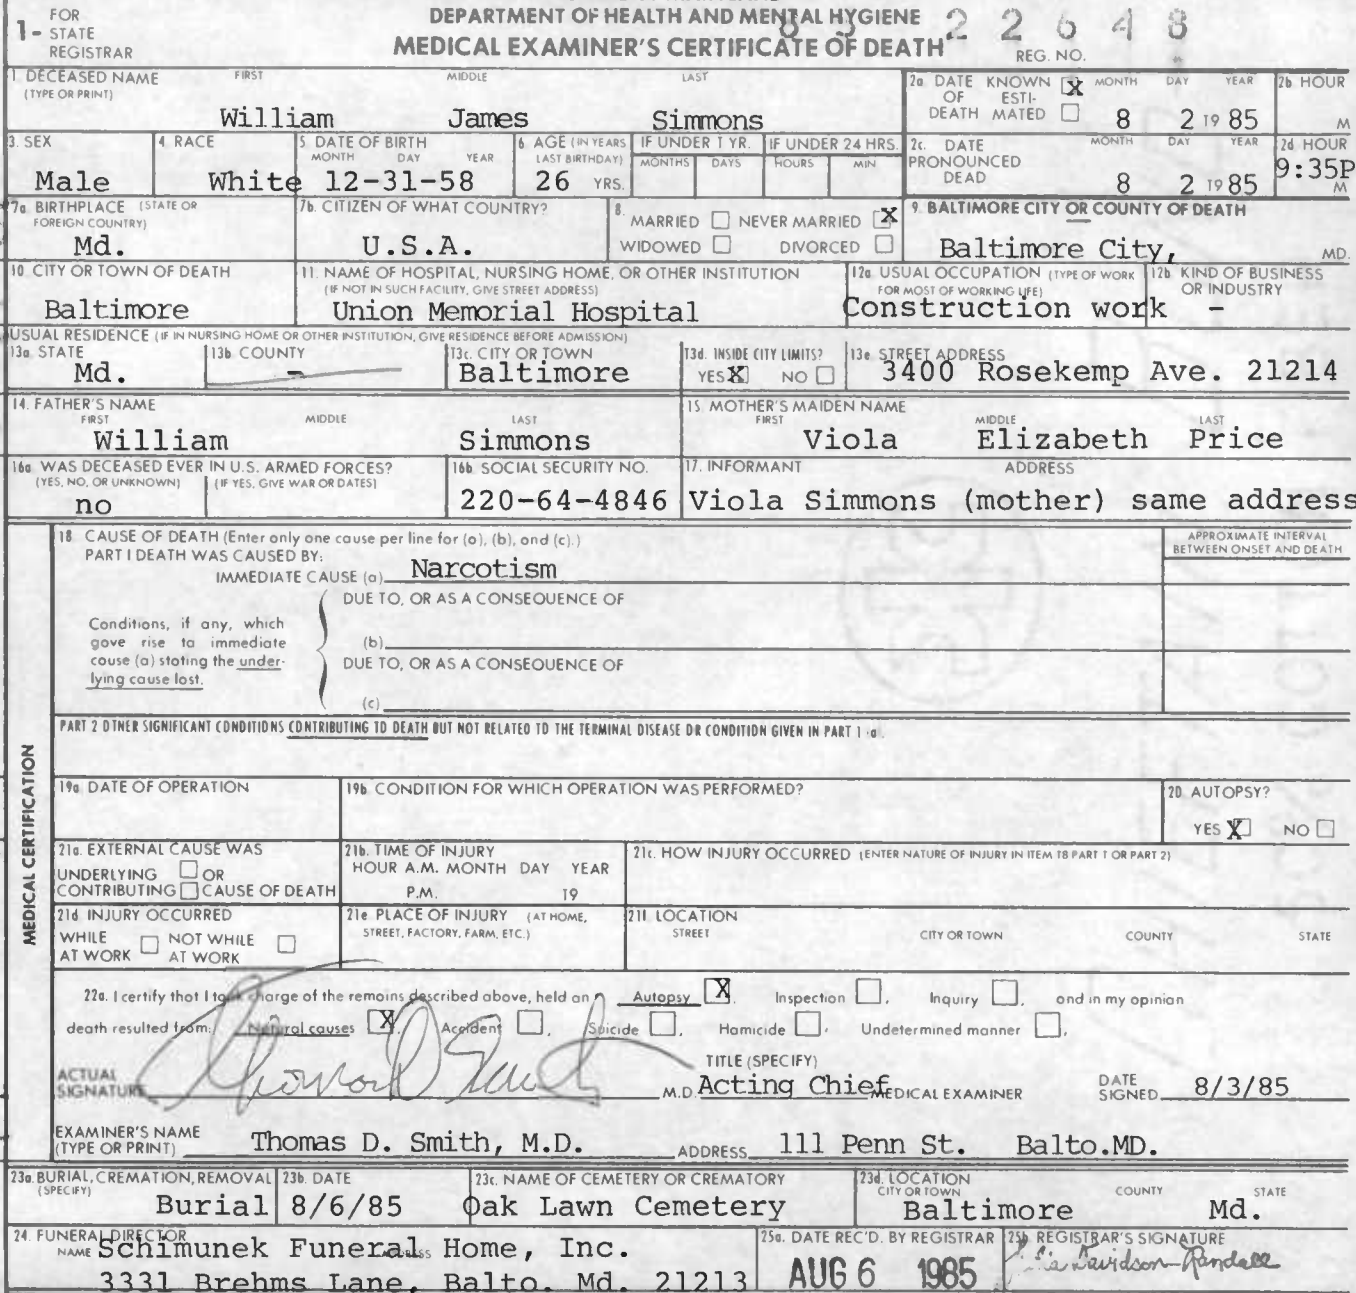 FOR
1- STATE
REGISTRAR
DEPARTMENT OF HEALTH AND MENTAL HYGIENE
MEDICAL EXAMINER'S CERTIFICATE OF DEATH
8 5 2 2 6 4 8
REG. NO.
1. DECEASED NAME FIRST MIDDLE LAST
(TYPE OR PRINT)
William James Simmons
2a. DATE KNOWN X MONTH DAY YEAR 2b HOUR
OF ESTI-
DEATH MATED 8 2 19 85 M
3. SEX 4. RACE 5. DATE OF BIRTH 6. AGE (IN YEARS IF UNDER 1 YR. IF UNDER 24 HRS. 2c. DATE MONTH DAY YEAR 2d HOUR
MONTH DAY YEAR LAST BIRTHDAY) MONTHS DAYS HOURS MIN PRONOUNCED
DEAD
Male White 12-31-58 26 YRS. 8 2 19 85 9:35P M
7a. BIRTHPLACE (STATE OR
FOREIGN COUNTRY)
Md.
7b. CITIZEN OF WHAT COUNTRY?
U.S.A.
8. MARRIED NEVER MARRIED X
WIDOWED DIVORCED
9. BALTIMORE CITY OR COUNTY OF DEATH
Baltimore City, MD.
10. CITY OR TOWN OF DEATH
Baltimore
11. NAME OF HOSPITAL, NURSING HOME, OR OTHER INSTITUTION
(IF NOT IN SUCH FACILITY, GIVE STREET ADDRESS)
Union Memorial Hospital
12a. USUAL OCCUPATION (TYPE OF WORK
FOR MOST OF WORKING LIFE)
Construction work
12b. KIND OF BUSINESS
OR INDUSTRY
-
USUAL RESIDENCE (IF IN NURSING HOME OR OTHER INSTITUTION, GIVE RESIDENCE BEFORE ADMISSION)
13a. STATE 13b. COUNTY 13c. CITY OR TOWN 13d. INSIDE CITY LIMITS? 13e. STREET ADDRESS
Md. - Baltimore YES X NO 3400 Rosekemp Ave. 21214
14. FATHER'S NAME
FIRST MIDDLE LAST
William Simmons
15. MOTHER'S MAIDEN NAME
FIRST MIDDLE LAST
Viola Elizabeth Price
16a. WAS DECEASED EVER IN U.S. ARMED FORCES?
(YES, NO, OR UNKNOWN) (IF YES, GIVE WAR OR DATES)
no
16b. SOCIAL SECURITY NO.
220-64-4846
17. INFORMANT ADDRESS
Viola Simmons (mother) same address
MEDICAL CERTIFICATION
18. CAUSE OF DEATH (Enter only one cause per line for (a), (b), and (c).)
PART I DEATH WAS CAUSED BY:
IMMEDIATE CAUSE (a) Narcotism
APPROXIMATE INTERVAL
BETWEEN ONSET AND DEATH
DUE TO, OR AS A CONSEQUENCE OF
Conditions, if any, which
gave rise to immediate
cause (a) stating the under-
lying cause last.
(b)
DUE TO, OR AS A CONSEQUENCE OF
(c)
PART 2 OTHER SIGNIFICANT CONDITIONS CONTRIBUTING TO DEATH BUT NOT RELATED TO THE TERMINAL DISEASE OR CONDITION GIVEN IN PART 1 (a).
19a. DATE OF OPERATION
19b. CONDITION FOR WHICH OPERATION WAS PERFORMED?
20. AUTOPSY?
YES X NO
21a. EXTERNAL CAUSE WAS
UNDERLYING OR
CONTRIBUTING CAUSE OF DEATH
21b. TIME OF INJURY
HOUR A.M. MONTH DAY YEAR
P.M. 19
21c. HOW INJURY OCCURRED (ENTER NATURE OF INJURY IN ITEM 18 PART 1 OR PART 2)
21d. INJURY OCCURRED
WHILE NOT WHILE
AT WORK AT WORK
21e. PLACE OF INJURY (AT HOME,
STREET, FACTORY, FARM, ETC.)
21f. LOCATION
STREET CITY OR TOWN COUNTY STATE
22a. I certify that I took charge of the remains described above, held an Autopsy X, Inspection , Inquiry , and in my opinion
death resulted from: Natural causes X, Accident , Suicide , Homicide , Undetermined manner ,
ACTUAL
SIGNATURE Thomas D Smith M.D.
TITLE (SPECIFY)
Acting Chief MEDICAL EXAMINER
DATE
SIGNED 8/3/85
EXAMINER'S NAME
(TYPE OR PRINT) Thomas D. Smith, M.D. ADDRESS 111 Penn St. Balto.MD.
23a. BURIAL, CREMATION, REMOVAL
(SPECIFY)
Burial
23b. DATE
8/6/85
23c. NAME OF CEMETERY OR CREMATORY
Oak Lawn Cemetery
23d. LOCATION
CITY OR TOWN COUNTY STATE
Baltimore Md.
24. FUNERAL DIRECTOR
NAME Schimunek Funeral Home, Inc.
ADDRESS
3331 Brehms Lane, Balto. Md. 21213
25a. DATE REC'D. BY REGISTRAR
AUG 6 1985
25b. REGISTRAR'S SIGNATURE
Davidson-Randall